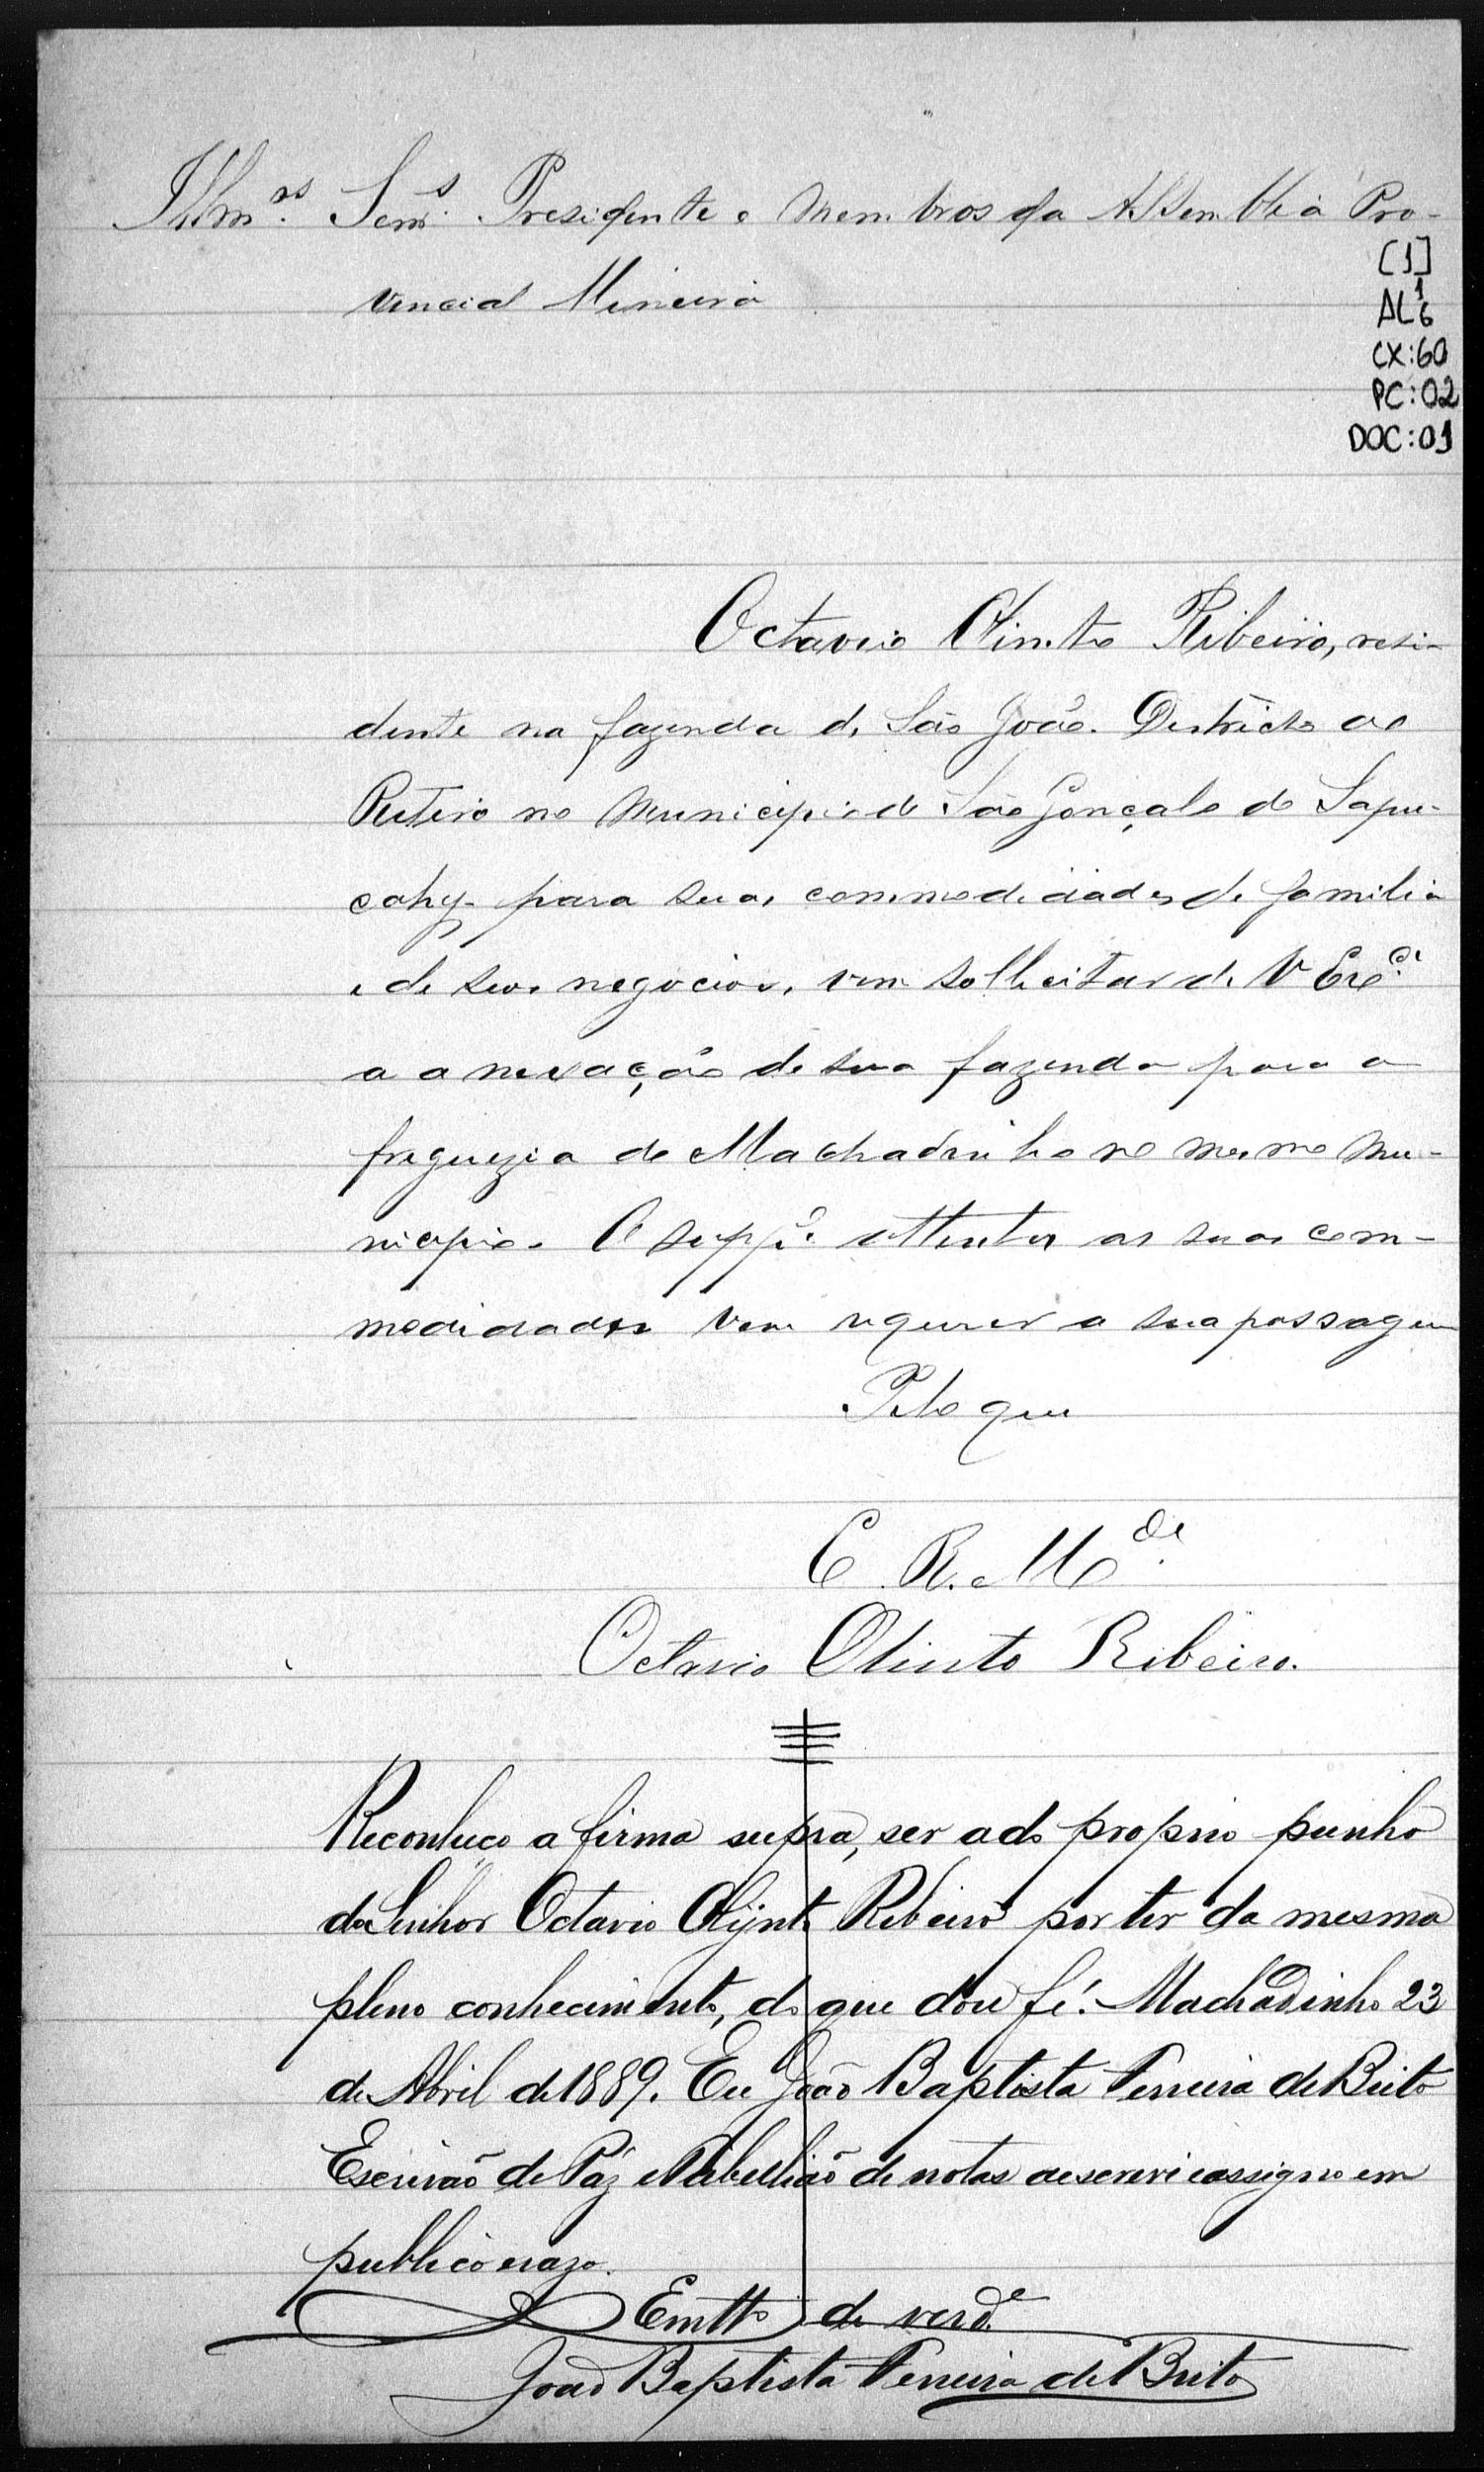 Illm.os Senr.s Presidente e Membros da Assemblea Pro-
vencial Mineira
[1]
AL 1 6
CX:60
PC:02
DOC:01
Octavio Olinto Ribeiro, resi-
dente na fazenda de São João. Districto do
Retiro no Municipio de São Gonçalo do Sapu-
cahy. para suas commodidades de familia
e de seos negocios, vem sollicitar de V Exc.ci
a anexação de sua fazenda para a
freguezia do Machadinho no mesmo Mu-
nicipio. O supp.e attentas as suas com-
modidades vem requerer a sua passagem
Pelo que
E. R. M.ce
Octavio Olinto Ribeiro.
Reconheço a firma supra, ser a do proprio punho
do Senhor Octavio Olijnto Ribeiro por ter da mesma
pleno conhecimento, do que dou fé. Machadinho 23
de Abril de 1889. Eu João Baptista Ferreira de Brito
Escrivão de Páz e Tabellião de notas o escrevi e assigno em
publico e razo.
Em tt.o de verd.e
João Baptista Ferreira de Brito